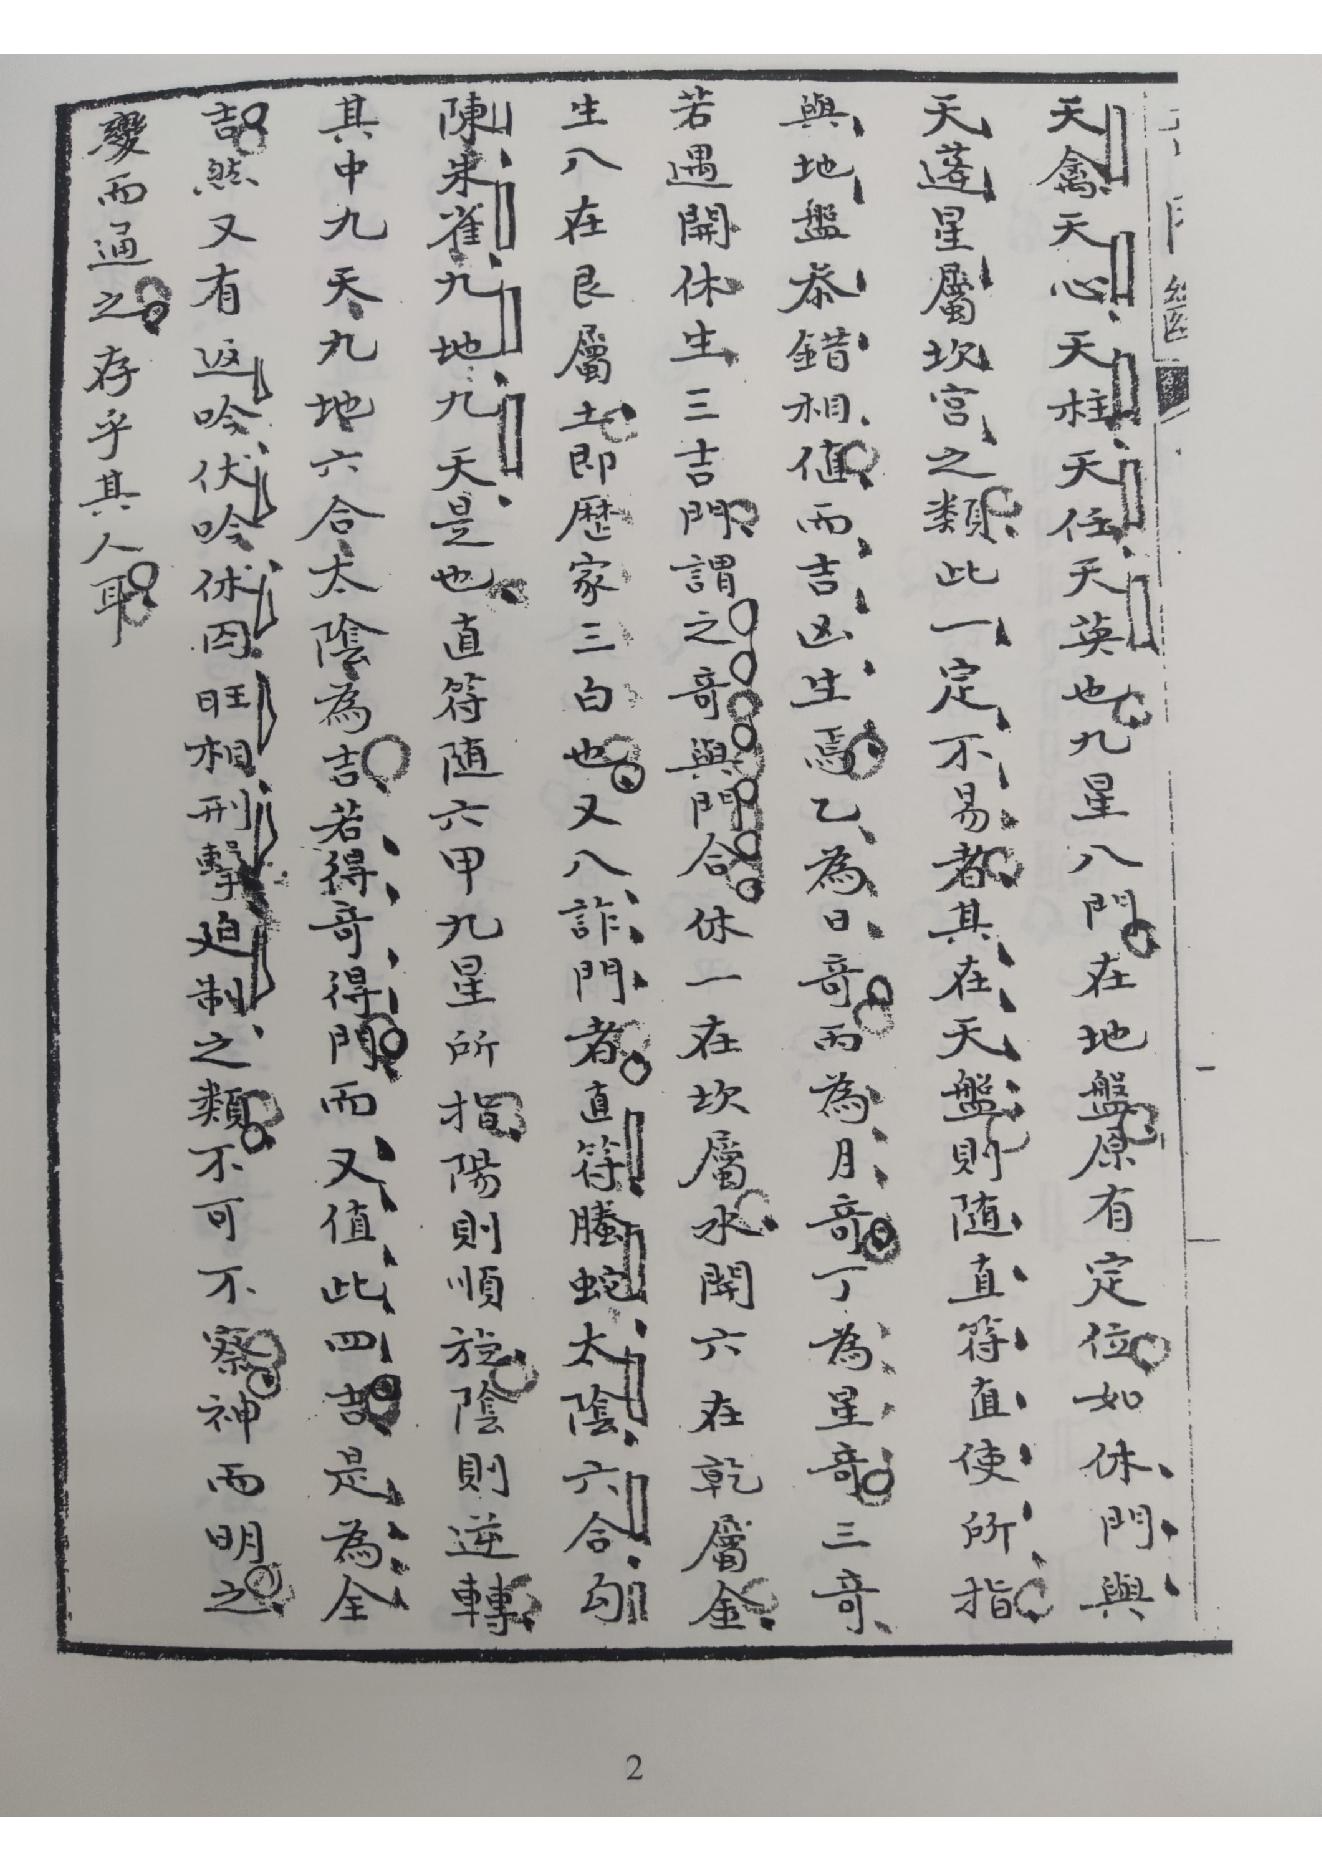 天禽天心天柱天任天英也九星八門在地盤原有定位如休門與
天蓬星屬坎宮之類此一定不易者其在天盤則随直符直使所指
與地盤叅錯相值而吉凶生焉乙為日竒丙為月竒丁為星竒三竒
若遇開休生三吉門謂之竒與門合休一在坎屬水開六在乾屬金
生八在艮屬土即歷家三白也又八詐門者直符螣蛇太陰六合勾
陳朱雀九地九天是也直符随六甲九星所指陽則順旋陰則逆轉
其中九天九地六合太陰為吉若得竒得門而又值此四吉是為全
吉然又有返吟伏吟休囚旺相刑擊廹制之類不可不察神而明之
變而通之存乎其人耳
2